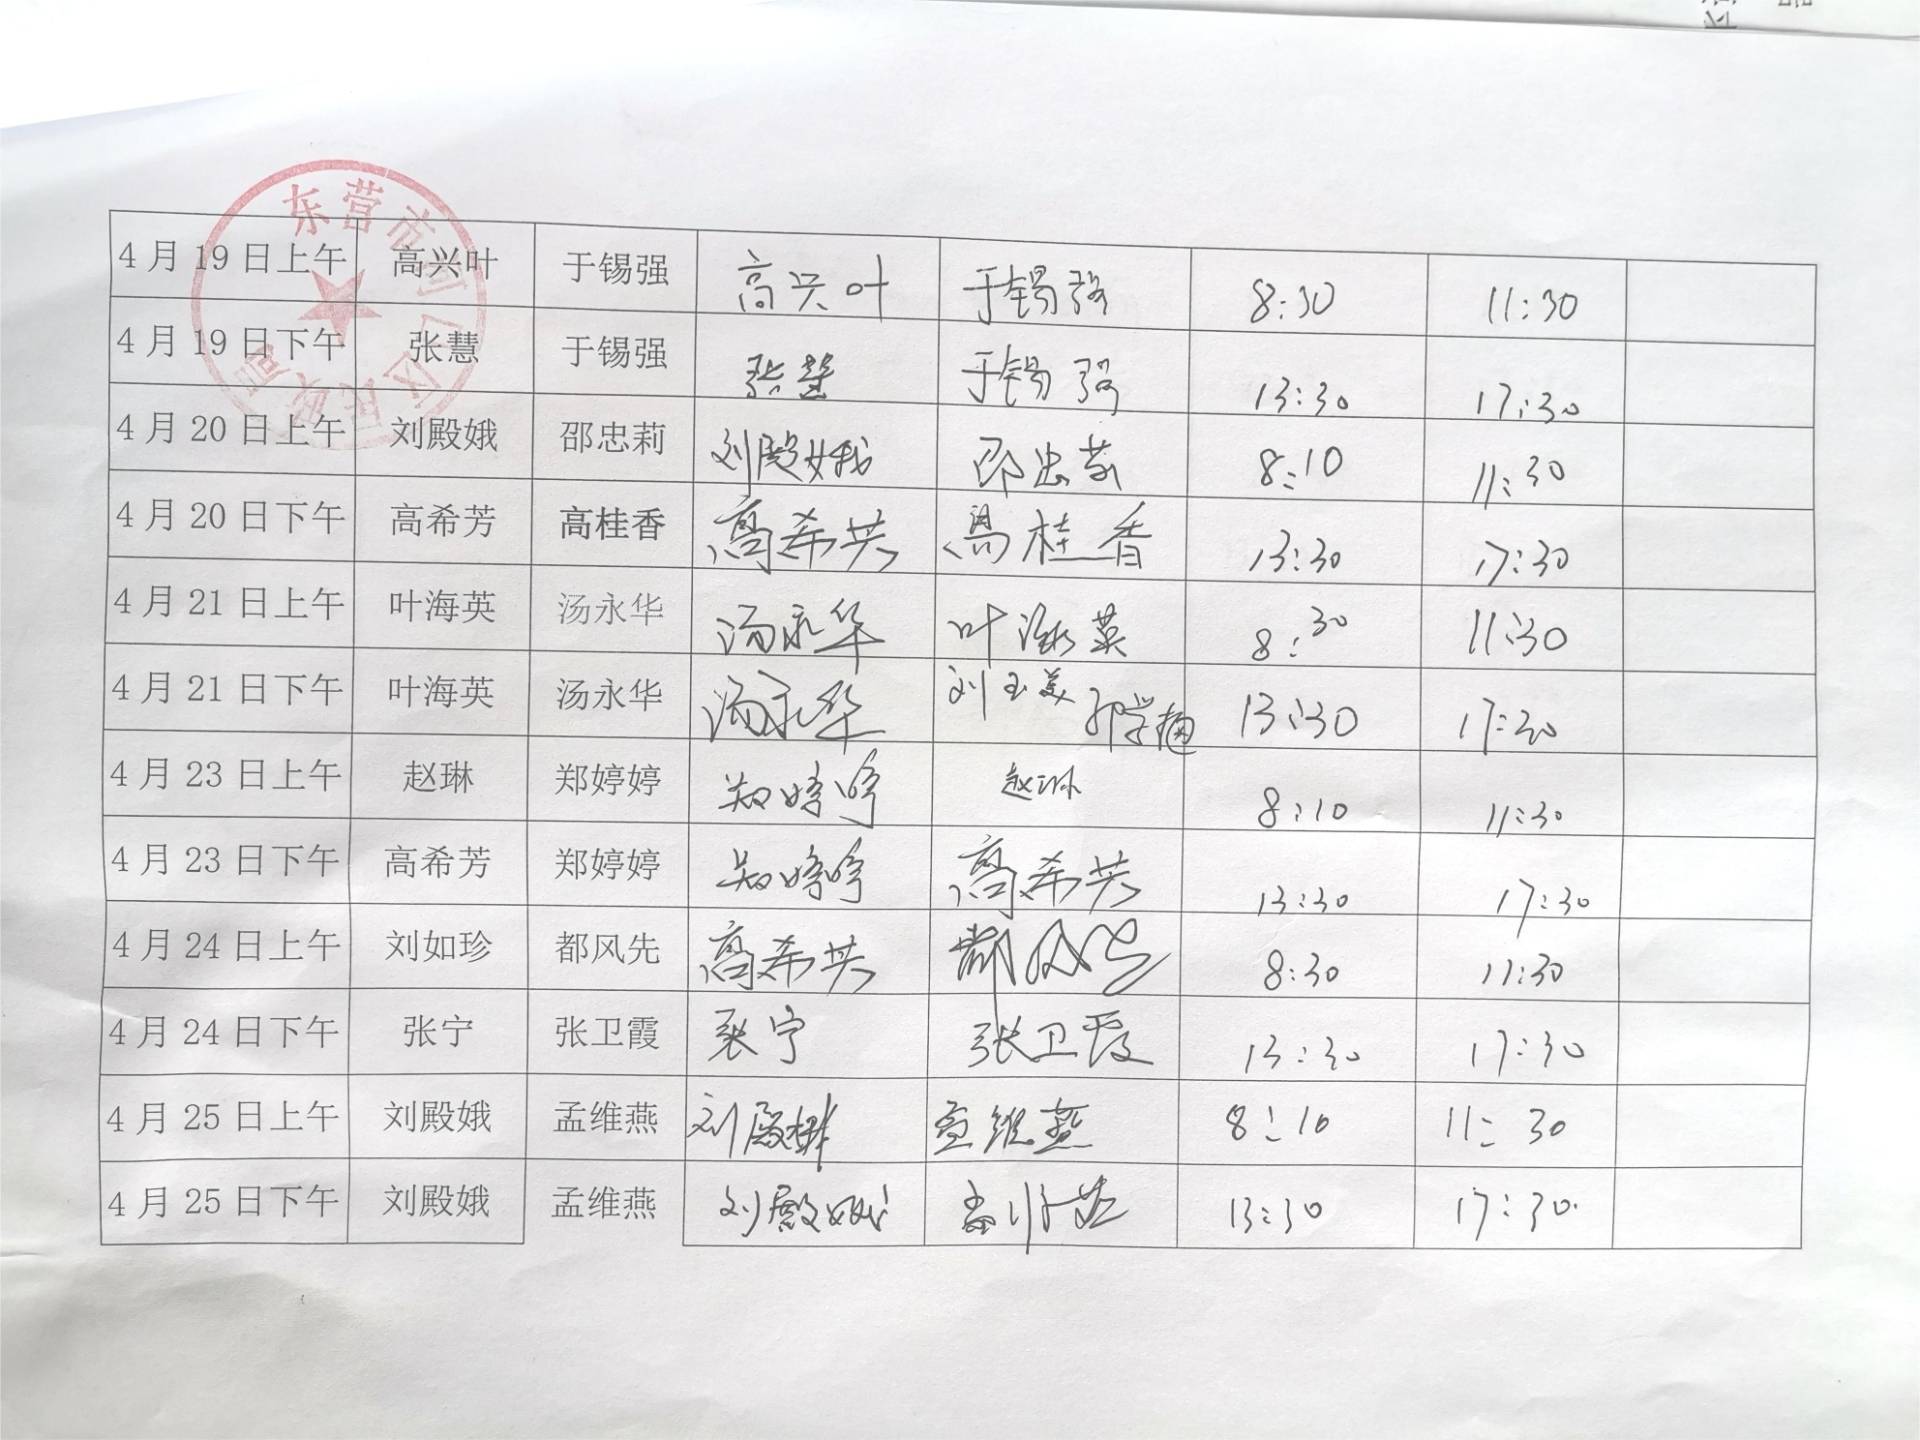 东营市河口区民政局
4月19日上午 高兴叶 于锡强 高兴叶 于锡强 8:30 11:30
4月19日下午 张慧 于锡强 张慧 于锡强 13:30 17:30
4月20日上午 刘殿娥 邵忠莉 刘殿娥 邵忠莉 8:10 11:30
4月20日下午 高希芳 高桂香 高希芳 高桂香 13:30 17:30
4月21日上午 叶海英 汤永华 汤永华 叶海英 8:30 11:30
4月21日下午 叶海英 汤永华 汤永华 刘玉美 13:30 17:30
4月23日上午 赵琳 郑婷婷 郑婷婷 赵琳 8:10 11:30
4月23日下午 高希芳 郑婷婷 郑婷婷 高希芳 13:30 17:30
4月24日上午 刘如珍 都风先 高希芳 都风先 8:30 11:30
4月24日下午 张宁 张卫霞 张宁 张卫霞 13:30 17:30
4月25日上午 刘殿娥 孟维燕 刘殿娥 孟维燕 8:10 11:30
4月25日下午 刘殿娥 孟维燕 刘殿娥 孟维燕 13:30 17:30